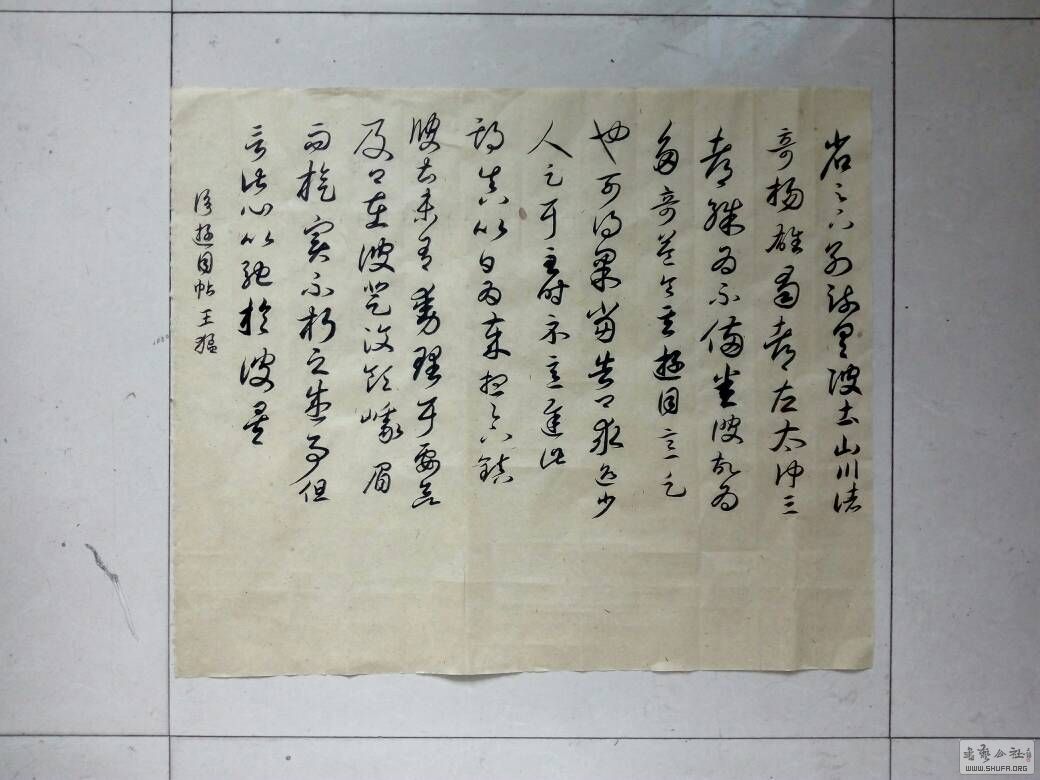 省足下別疏具彼土山川諸
奇揚雄蜀都左太沖三
都殊為不備悉彼故為
多奇益令其遊目意足
也可得果當告卿求迎少
人足耳至時示意遲此
期真以日為歲想足下鎮
彼土未有動理耳要欲
及卿在彼登汶領峨眉
而旋實不朽之盛事但
言此心以馳於彼矣
臨遊目帖 王猛
書藝公社
WWW.SHUFA.ORG